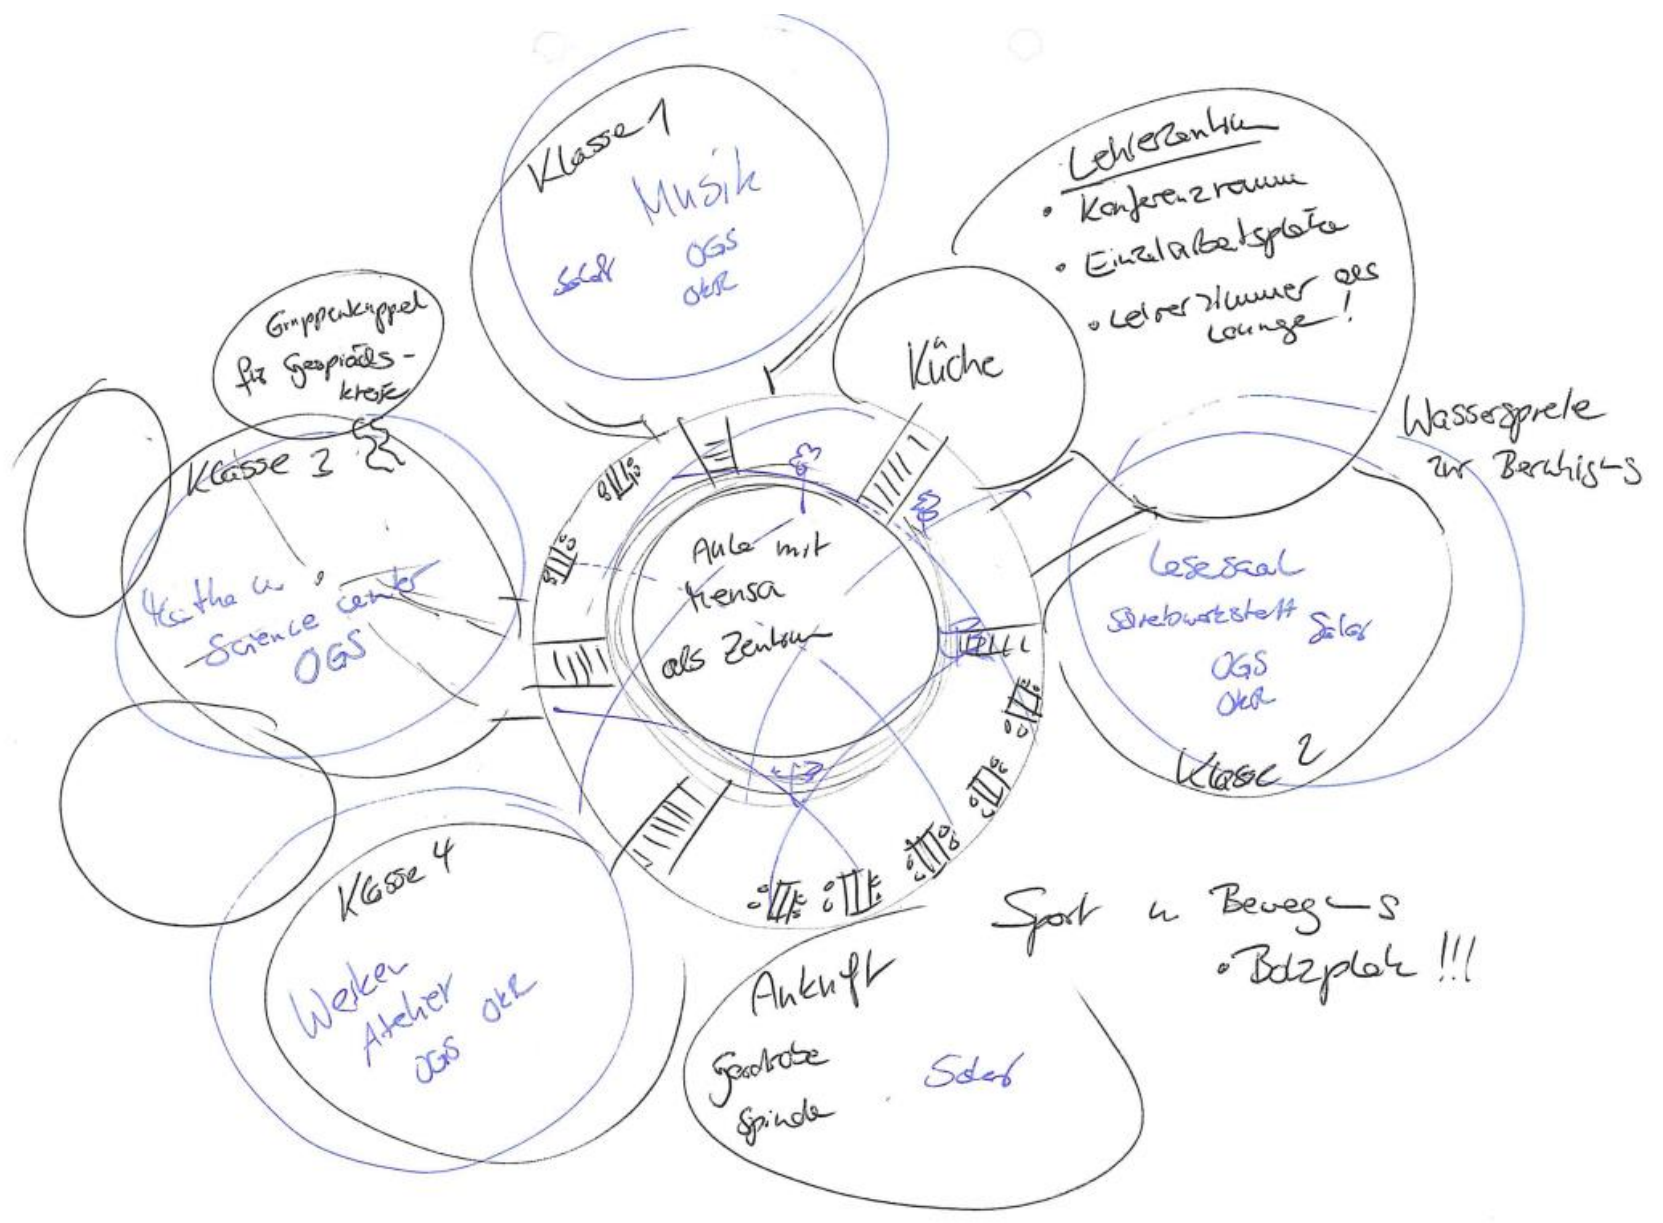 Klasse 1
Musik
Solar
OGS
OKR
Lehrerzentrum
• Konferenzraum
• Einzelarbeitsplätze
• Lehrerzimmer als
Lounge!
Küche
Gruppenkuppel
für Gesprächs-
kreise
Wasserspiele
zur Beruhigung
Klasse 3
Mathe u.
Science center
OGS
Aula mit
Mensa
als Zentrum
Lesesaal
Schreibwerkstatt
Solar
OGS
OKR
Klasse 2
Klasse 4
Werken
Atelier
OGS
OKR
Sport u Bewegung
• Bolzplatz !!!
Ankunft
Garderobe
Spinde
Solar